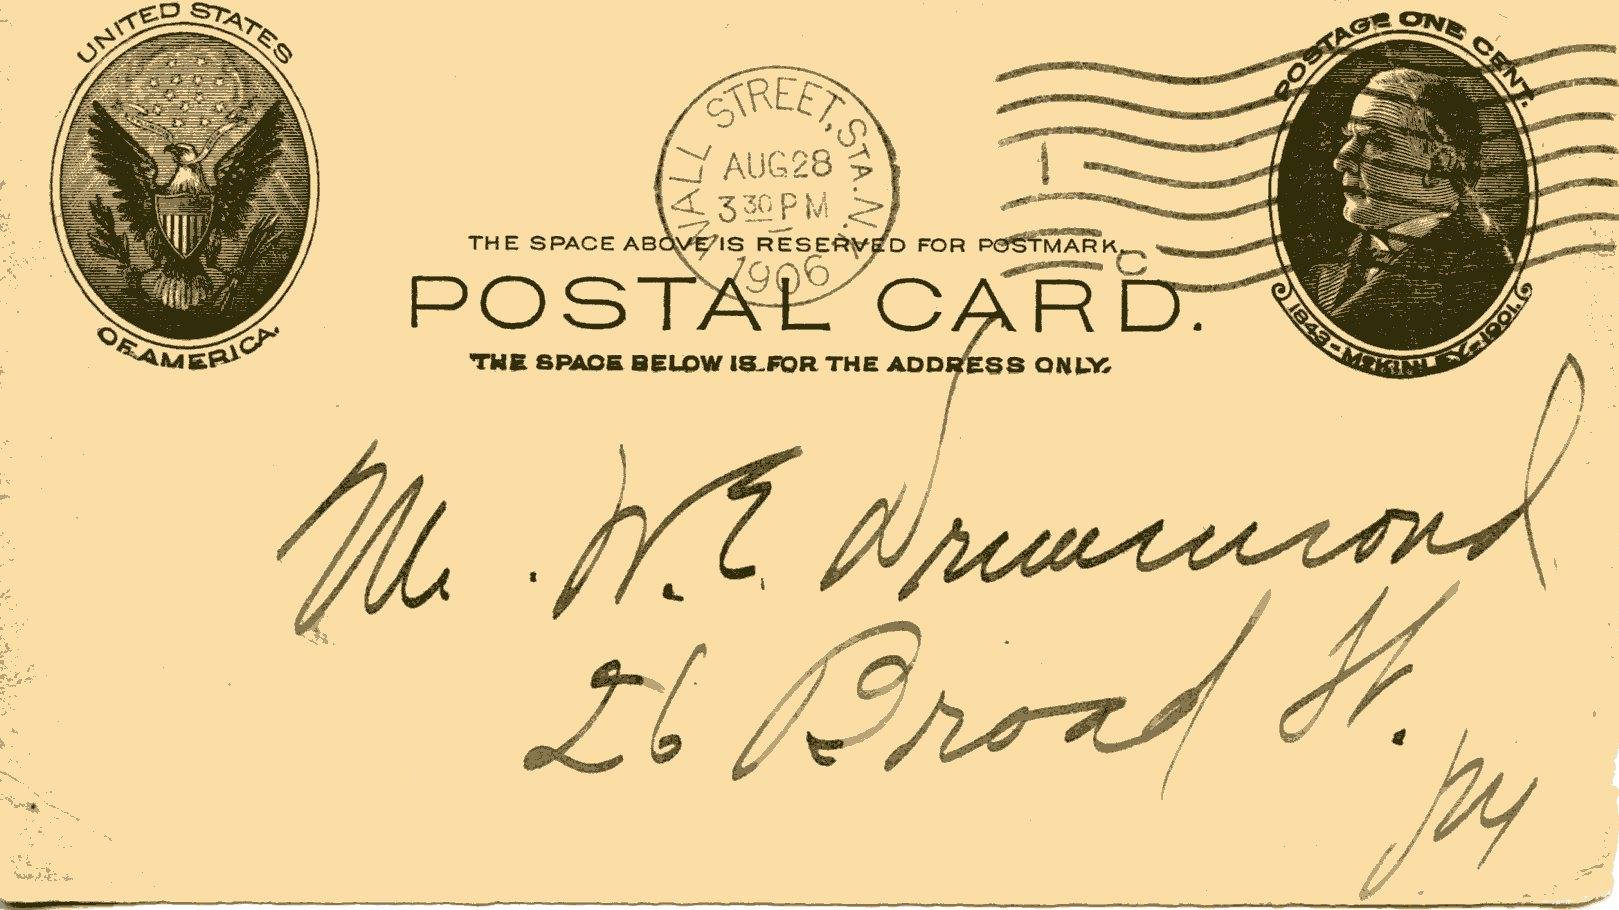 UNITED STATES
OF AMERICA.
WALL STREET, STA. N.Y.
AUG 28
3 30 PM
1906
1
C
POSTAGE ONE CENT.
1843-McKINLEY-1901.
THE SPACE ABOVE IS RESERVED FOR POSTMARK.
POSTAL CARD.
THE SPACE BELOW IS FOR THE ADDRESS ONLY.
Mr. W. E. Drummond
26 Broad St.
NY